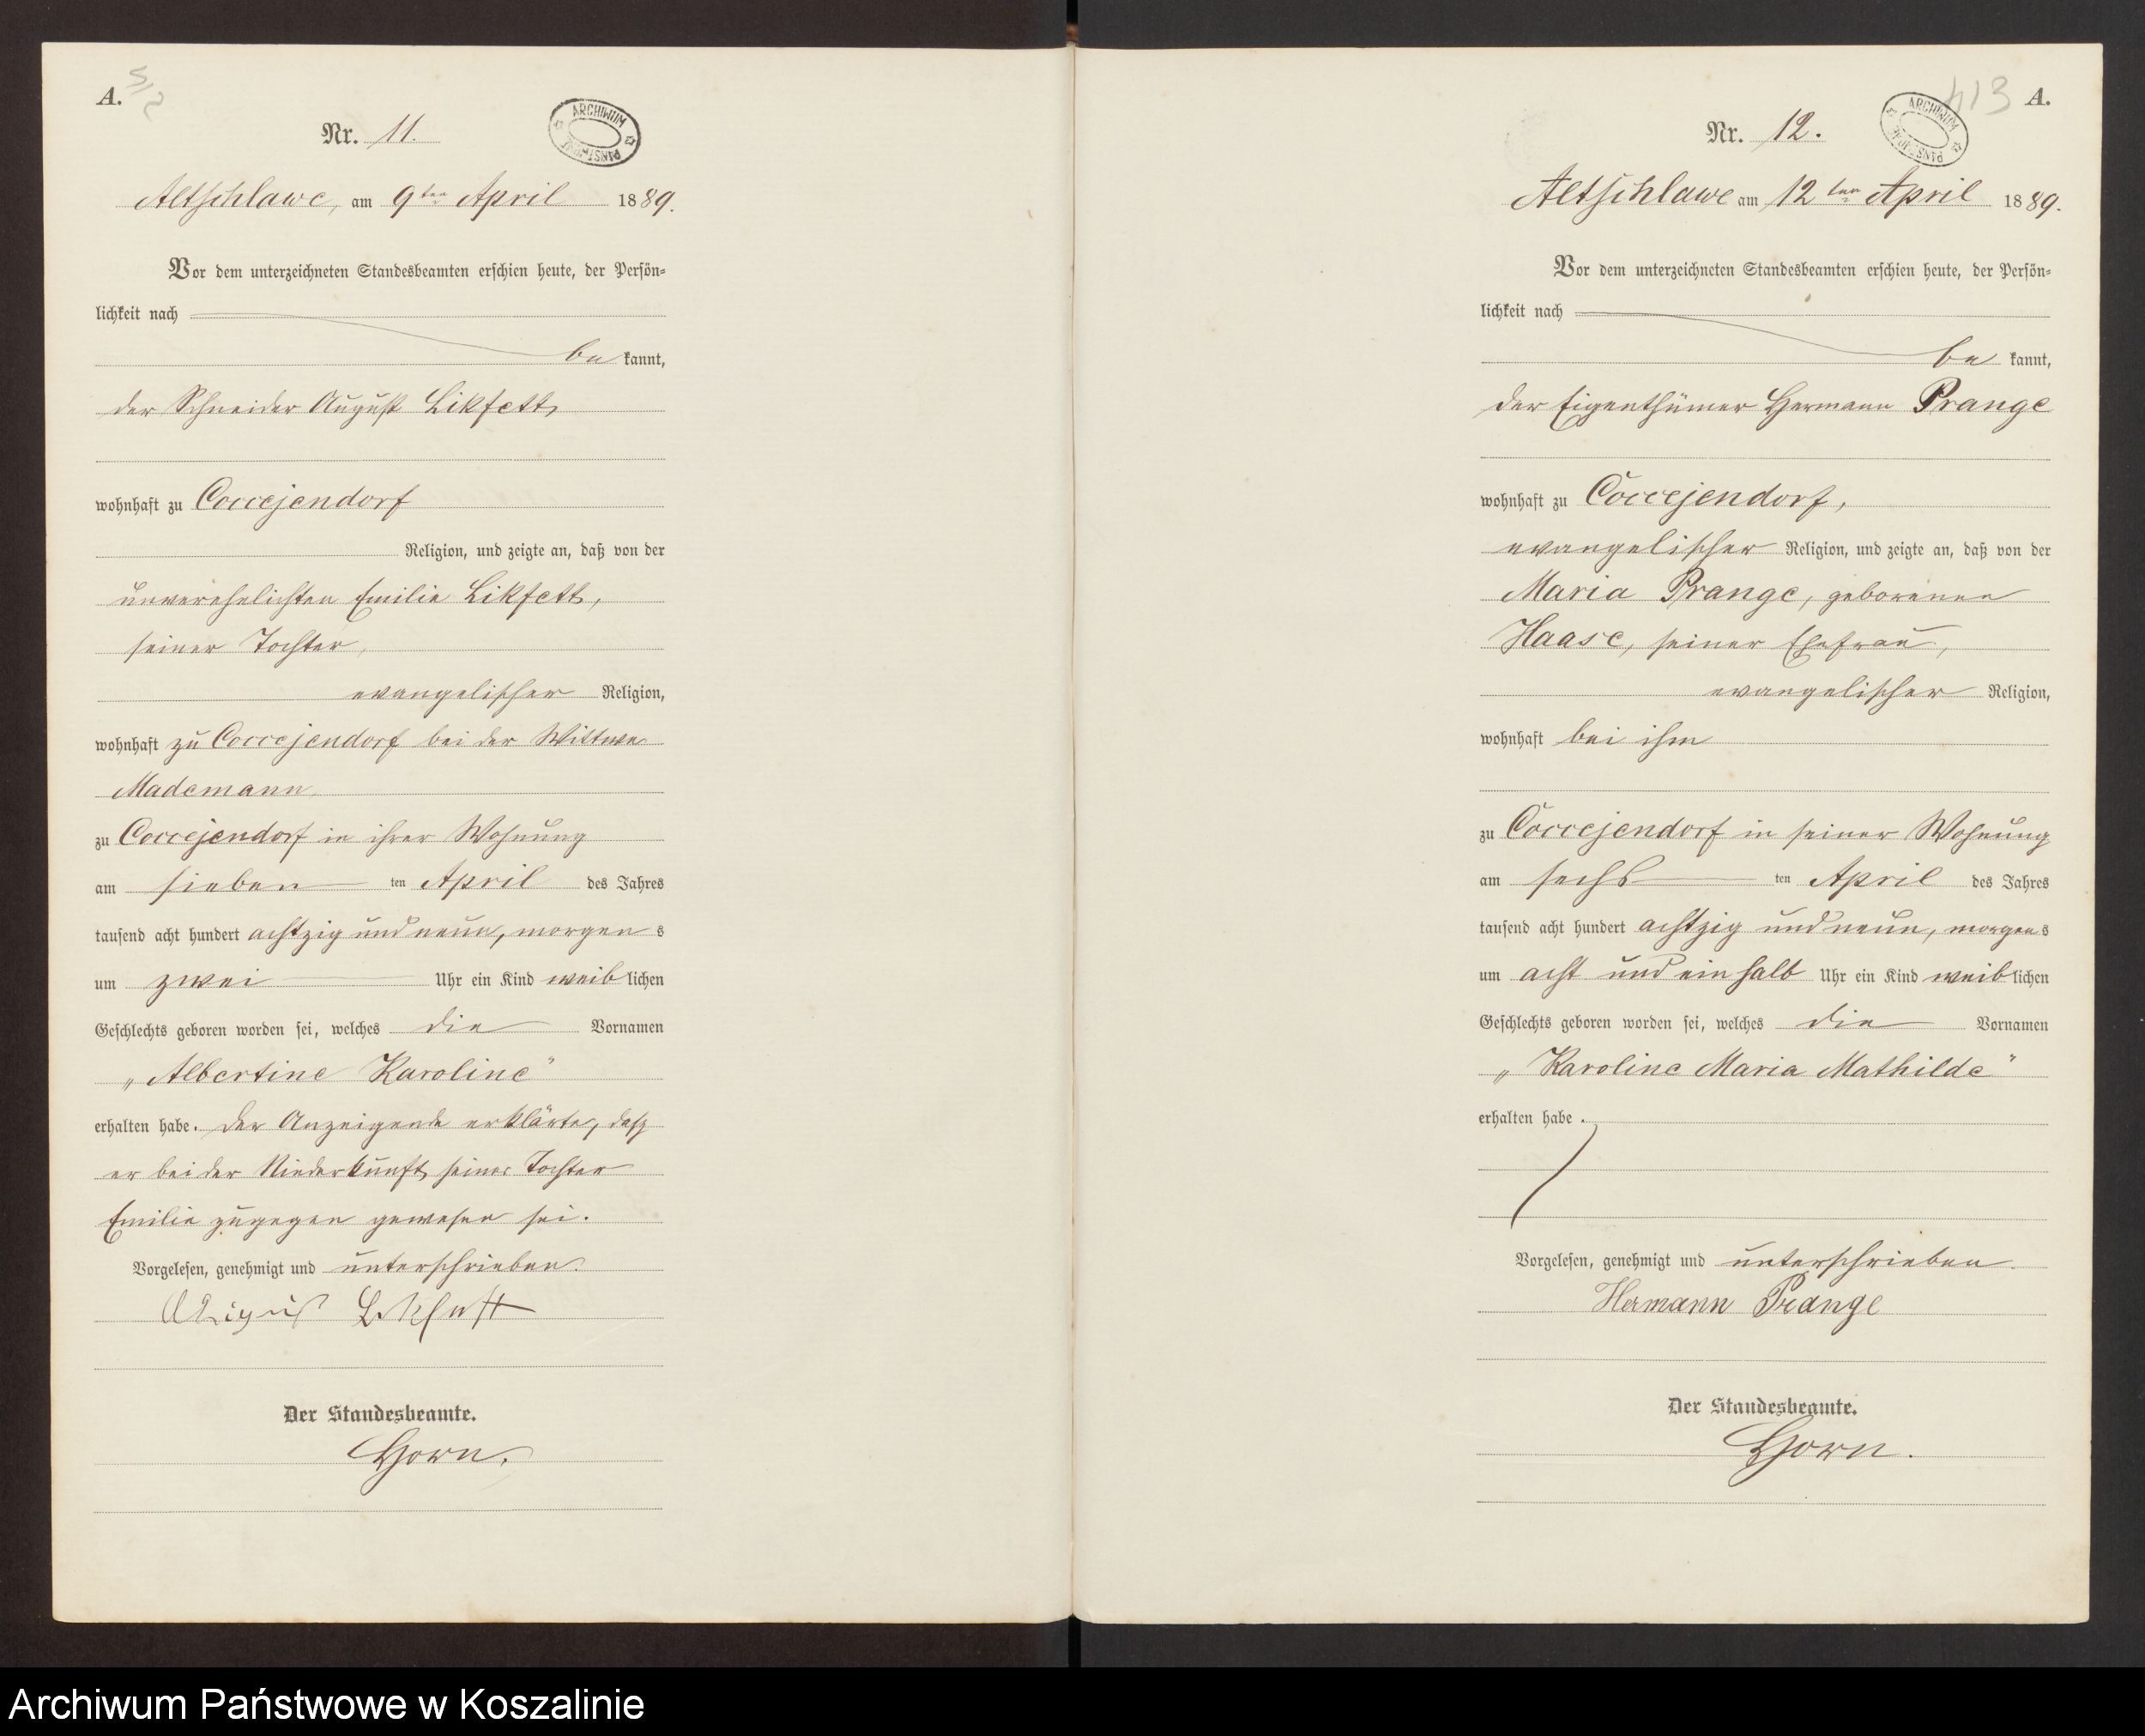 A.
Nr. 11.
ARCHIWUM PAŃSTWOWE
Altschlawe, am 9ten April 1889.
Vor dem unterzeichneten Standesbeamten erschien heute, der Persön=
lichkeit nach
be kannt,
der Schneider August Likfett,
wohnhaft zu Coccejendorf
Religion, und zeigte an, daß von der
unverehelichten Emilie Likfett,
seiner Tochter,
evangelischer Religion,
wohnhaft zu Coccejendorf bei der Wittwe
Mademann,
zu Coccejendorf in ihrer Wohnung
am sieben ten April des Jahres
tausend acht hundert achtzig und neun, morgen s
um zwei Uhr ein Kind weib lichen
Geschlechts geboren worden sei, welches die Vornamen
„Albertine Karoline“
erhalten habe. Der Anzeigende erklärte, daß
er bei der Niederkunft seiner Tochter
Emilie zugegen gewesen sei.
Vorgelesen, genehmigt und unterschrieben.
August Likfett
Der Standesbeamte.
Horn.
413 A.
Nr. 12.
ARCHIWUM PAŃSTWOWE
Altschlawe am 12ten April 1889.
Vor dem unterzeichneten Standesbeamten erschien heute, der Persön=
lichkeit nach
be kannt,
der Eigenthümer Hermann Prange
wohnhaft zu Coccejendorf,
evangelischer Religion, und zeigte an, daß von der
Maria Prange, geborenen
Haase, seiner Ehefrau,
evangelischer Religion,
wohnhaft bei ihm
zu Coccejendorf in seiner Wohnung
am sechs ten April des Jahres
tausend acht hundert achtzig und neun, morgen s
um acht und ein halb Uhr ein Kind weib lichen
Geschlechts geboren worden sei, welches die Vornamen
„Karoline Maria Mathilde“
erhalten habe.
Vorgelesen, genehmigt und unterschrieben.
Hermann Prange
Der Standesbeamte.
Horn.
Archiwum Państwowe w Koszalinie